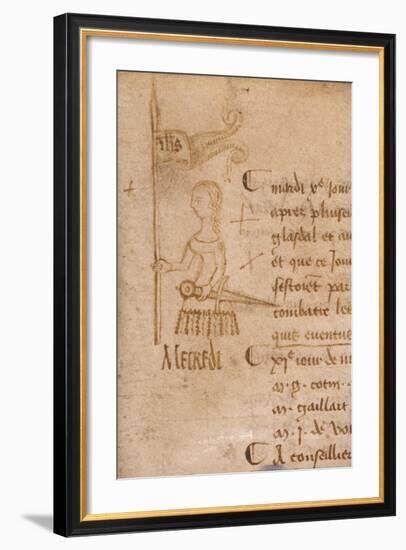 ihs
mardi xe Jour
apres pluseu
glasdal et au
et que ce Jou
sestoient par
combatre les
quis eventus
MECREDI
xie iour de m
m. g. cotin
m. gaillart
m. J. de vo
A conseillier